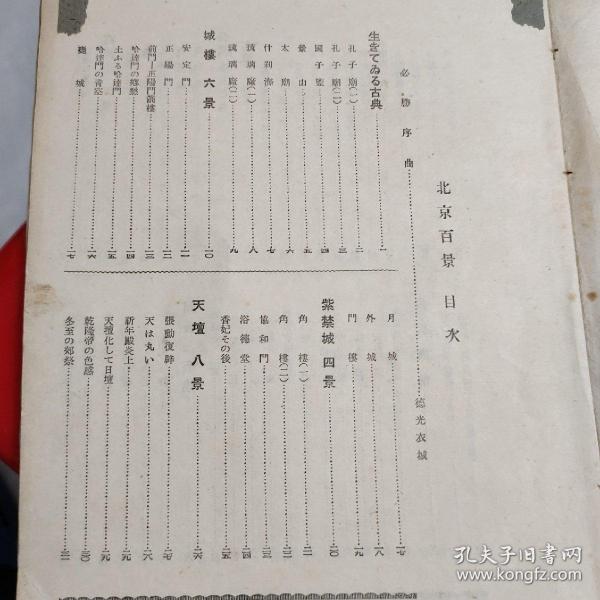 北京百景 目次
必勝序曲……德光衣城
生きてゐる古典……一
孔子廟(一)……二
孔子廟(二)……三
國子監……四
景山……五
太廟……六
什刹海……七
琉璃廠(一)……八
琉璃廠(二)……九
城樓六景……一〇
安定門……一一
正陽門……一二
前門—正陽門箭樓……一三
哈達門の鄕愁……一四
土ふる哈達門……一五
哈達門の靑空……一六
城……一七
月城……一七
外城……一八
門樓……一九
紫禁城四景……二〇
角樓(一)……二一
角樓(二)……二二
協和門……二三
浴德堂……二四
香妃その後……二五
天壇八景……二六
張勳復辟……二七
天は丸い……二八
祈年殿炎上……二九
天壇化して日壇……二九
乾隆帝の色感……三〇
冬至の郊祭……三一
孔夫子旧书网
www.kongfz.com